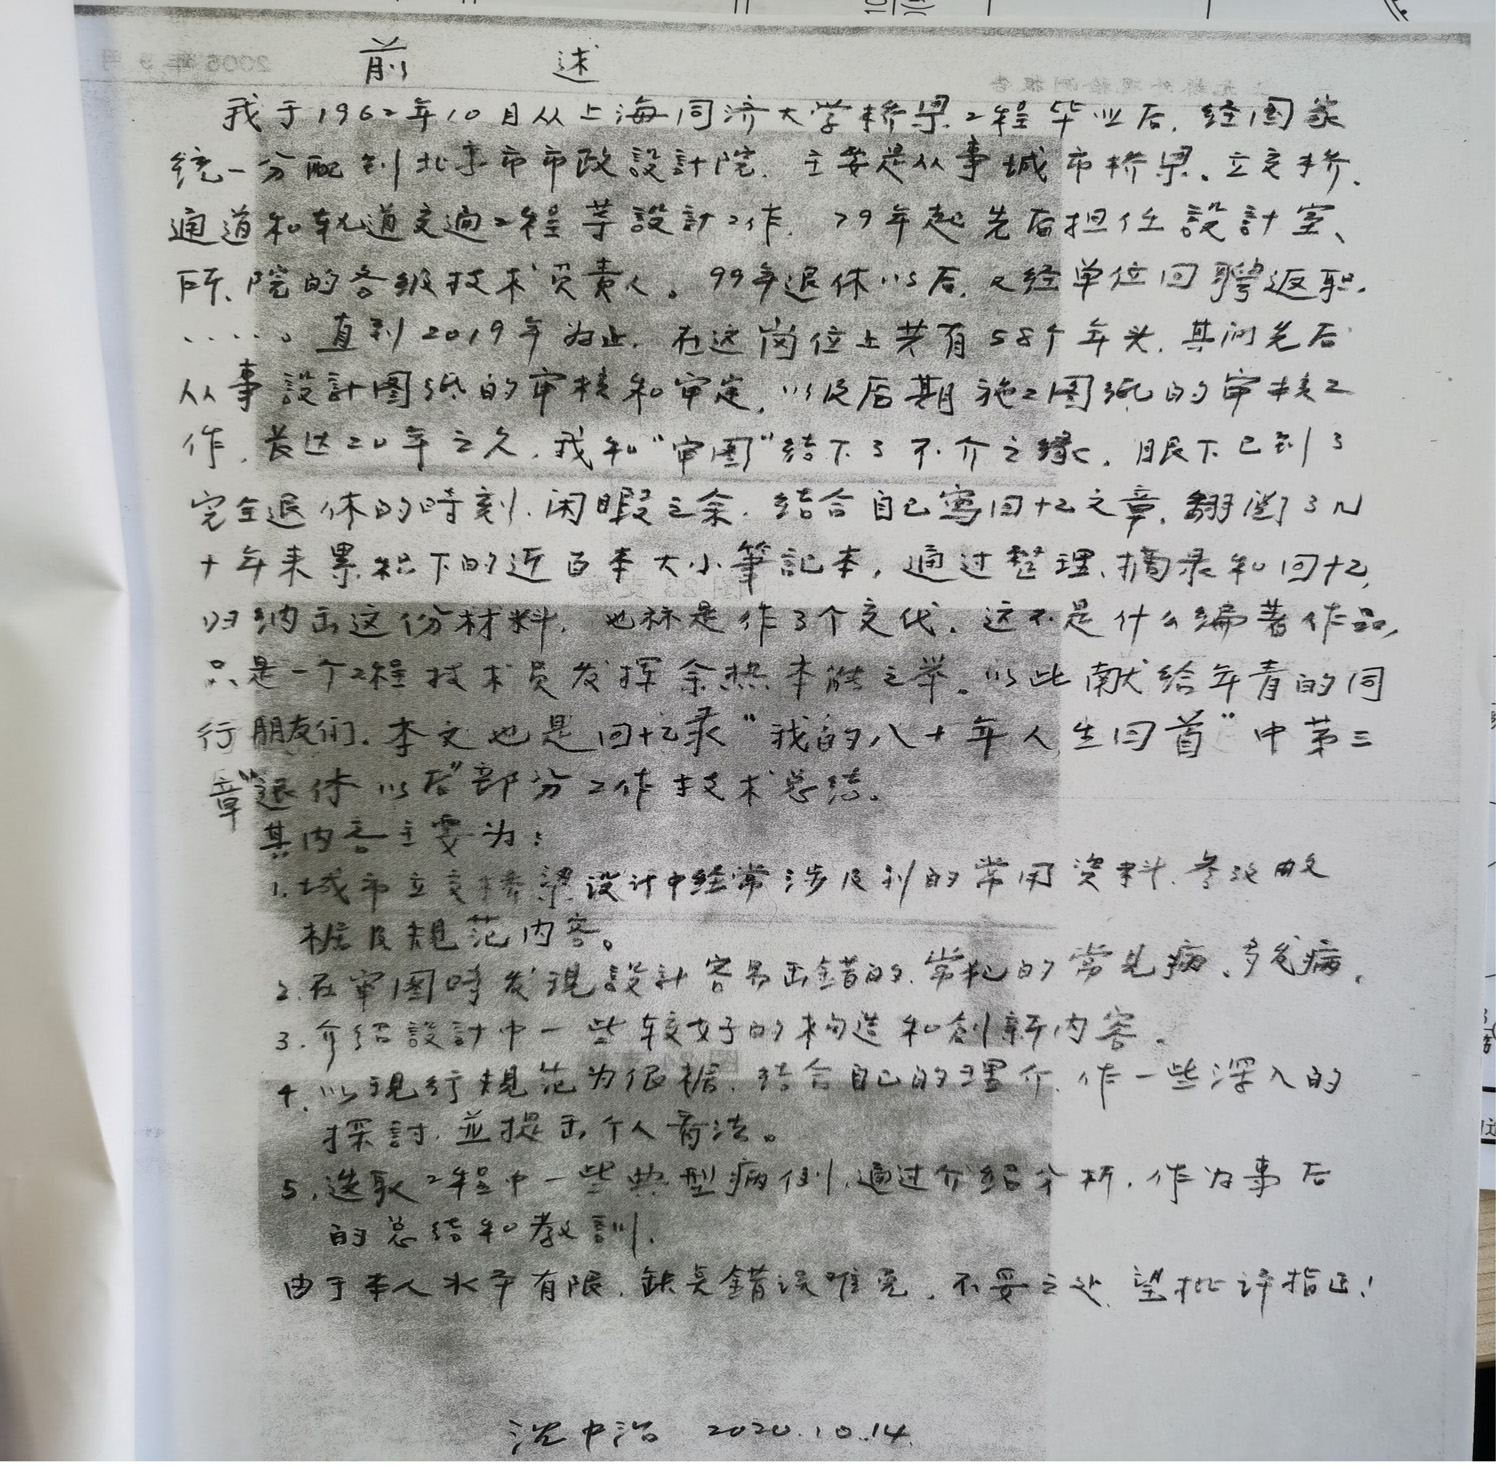 前 述
我于1962年10月从上海同济大学桥梁工程毕业后,经国家
统一分配到北京市市政設計院,主要是从事城市桥梁、立交桥、
通道和轨道交通工程等設計工作,79年起先后担任設計室、
所、院的各级技术负责人。99年退休以后,又经单位回聘返职,
……。直到2019年为止,在这岗位上共有58个年头,其间先后
从事設計图纸的审核和审定,以及后期施工图纸的审核工
作,长达20年之久,我和“审图”结下了不介之缘,眼下已到了
完全退休的時刻,闲暇之余,结合自己写回忆文章,翻閱了几
十年来累积下的近百本大小筆記本,通过整理、摘录和回忆,
归纳出这份材料,也祘是作了个交代。这不是什么编著作品,
只是一个工程技术员发挥余热本能之举。以此献给年青的同
行朋友们。本文也是回忆录“我的八十年人生回首”中第三
章“退休以后”部分工作技术总结。
其内容主要为:
1.城市立交桥梁設計中经常涉及到的常用资料、参数
据及規范内容。
2.在审图時发现設計容易出错的、常犯的常見病、多发病。
3.介绍設計中一些较好的构造和创新内容。
4.以现行規范为依据,结合自己的理介,作一些深入的
探討,並提出个人看法。
5.选取工程中一些典型病例,通过介绍分析,作为事后
的总结和教訓。
由于本人水平有限,缺点错误难免,不妥之处,望批评指正!
沈中治 2020.10.14.
2006年9月